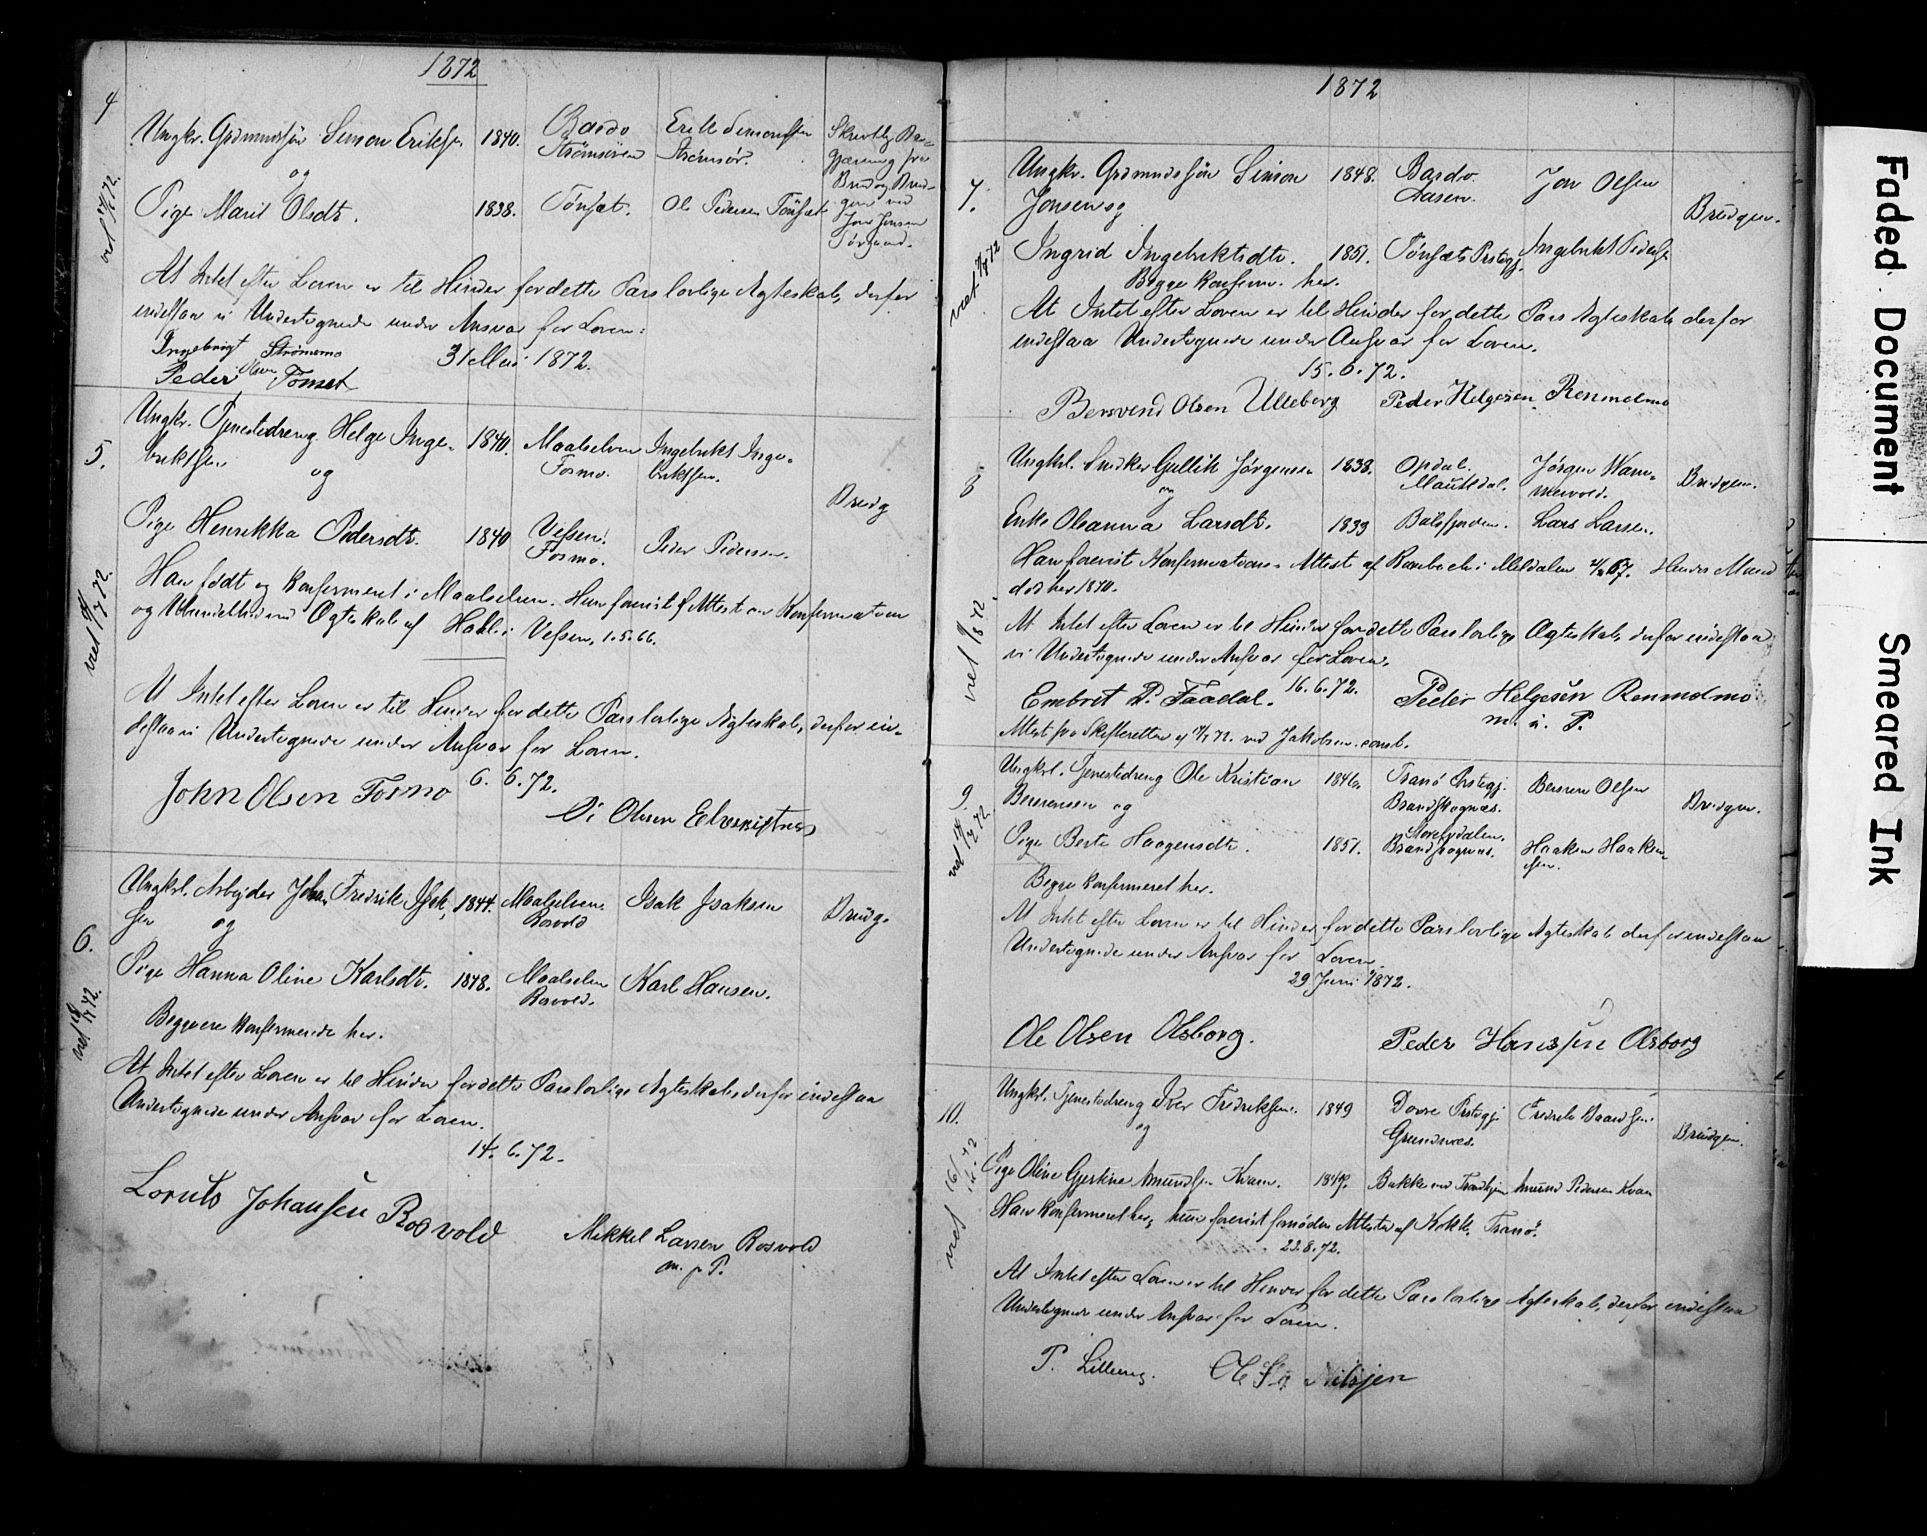 1872
4
Ungkr. Grdmundssøn Simon Eriksen 1840. Bardo Strømsøren Erik Simonsen Strømsør. Skrivtlig Be-
og
gjæring fra
Brud og Brud-
gom ved
Jon Jonsen
Pige Marit Olsdt. 1838. Tönsæt. Ole Pedersen Tönsæt
viet 72.
At Intet efter Loven er til Hinder for dette Pars lovlige Ægteskab, derfor
indestaa vi Undertegnede under Ansvar for Loven:
Ingebrigt Strømsmo 31 Mai 1872.
Peder Olsen Tömset
5.
Ungkr. Tjenestedreng Helge Inge- 1840. Maalselven Ingebrikt Inge-
briktsen og Fosmo. briktsen.
Brudg
Pige Henrikka Pedersdt. 1840 Vefsen. Peder Pedersen.
Fosmo.
viet 72.
Han født og konfirmeret i Maalselven. Hun foreviist Attest om Konfirmation
og Uhindrethed med Ægteskab af Hall i Vefsen, 1.5.66.
At Intet efter Loven er til Hinder for dette Pars lovlige Ægteskab, derfor in-
destaa vi Undertegnede under Ansvar for Loven.
John Olsen Fosmo 6. 6. 72.
Ole Olsen Elvevijstnes
6.
Ungkrl. Arbejder Johan Fredrik Isak- 1844. Maalselven. Isak Isaksen Brudg.
sen og Rosvold
Pige Hanna Oline Karlsdt. 1848. Maalselven Karl Hansen.
Rosvold.
viet 72.
Begge ere konfirmerede her.
At Intet efter Loven er til Hinder for dette Pars lovlige Ægteskab, derfor indestaa
Undertegnede under Ansvar for Loven.
14. 6. 72.
Loruts Johansen Rosvold
Mikkel Larsen Rosvold
m. p. P.
1872
7.
Ungkr. Grdmundssøn Simon 1848. Bardo. Jon Olsen
Jonsen og Aasen. Brudgm.
Ingrid Ingebriktsdt. 1851. Tönsæts Prstgj. Ingebrikt Pedersen
Begge konfirm. her.
viet 72
At Intet efter Loven er til Hinder for dette Pars Ægteskab derfor
indestaa Undertegnede under Ansvar for Loven.
15. 6. 72.
Bersvend Olsen Ulleberg Peder Helgesen Renmælmo
8
Ungkrl. Snidker Gullik Jørgensen 1838. Opdal. Jørgen Wam-
og Mauktdal. mervold. Brudgm.
Enke Oleanna Larsdt. 1839 Balsfjorden. Lars Larsen.
Han foreviist Konfirmations-Attest af Rambech i Meldalen 67. Hendes Mand
død her 1870.
viet 72.
At Intet efter Loven er til Hinder for dette Pars lovlige Ægteskab derfor indestaa
vi Undertegnede under Ansvar for Loven.
16. 6. 72.
Embret P. Faadal. Peder Helgesen Renmælmo
m. i. P.
Attest fra Skifteretten af 72. ved Jakobsen const.
9.
Ungkrl. Tjenestedreng Ole Kristian 1846. Tranö Prstegj. Bersven Olsen
Bersvensen og Brandskognæs. Brudgm.
Pige Berte Haagensdt. 1851. Brandskognæs. Haaken Haaken-
sen.
viet 72.
Begge konfirmeret her.
At Intet efter Loven er til Hinder for dette Pars lovlige Ægteskab derfor indestaa
Undertegnede under Ansvar for Loven.
29 Juni 1872.
Ole Olsen Olsborg. Peder Hanssen Olsborg
10.
Ungkrl. Tjenestedreng Iver Fredriksen. 1849 Dovre Prstegj.
og Grundnæs. Brudgm.
Pige Oline Gjertine Amundsen Kvam. 1849. Bakke ved Trondhjem Amund Pedersen Kvam
viet 16/ 72
Han konfirmeret her, hun foreviist fornøden Attest af Kokk, Tranö.
23.8.72.
At Intet efter Loven er til Hinder for dette Pars lovlige Ægteskab, derfor indestaa
Undertegnede under Ansvar for Loven.
P. Lilleeng. Ole Nilsen
Faded Document
Smeared Ink